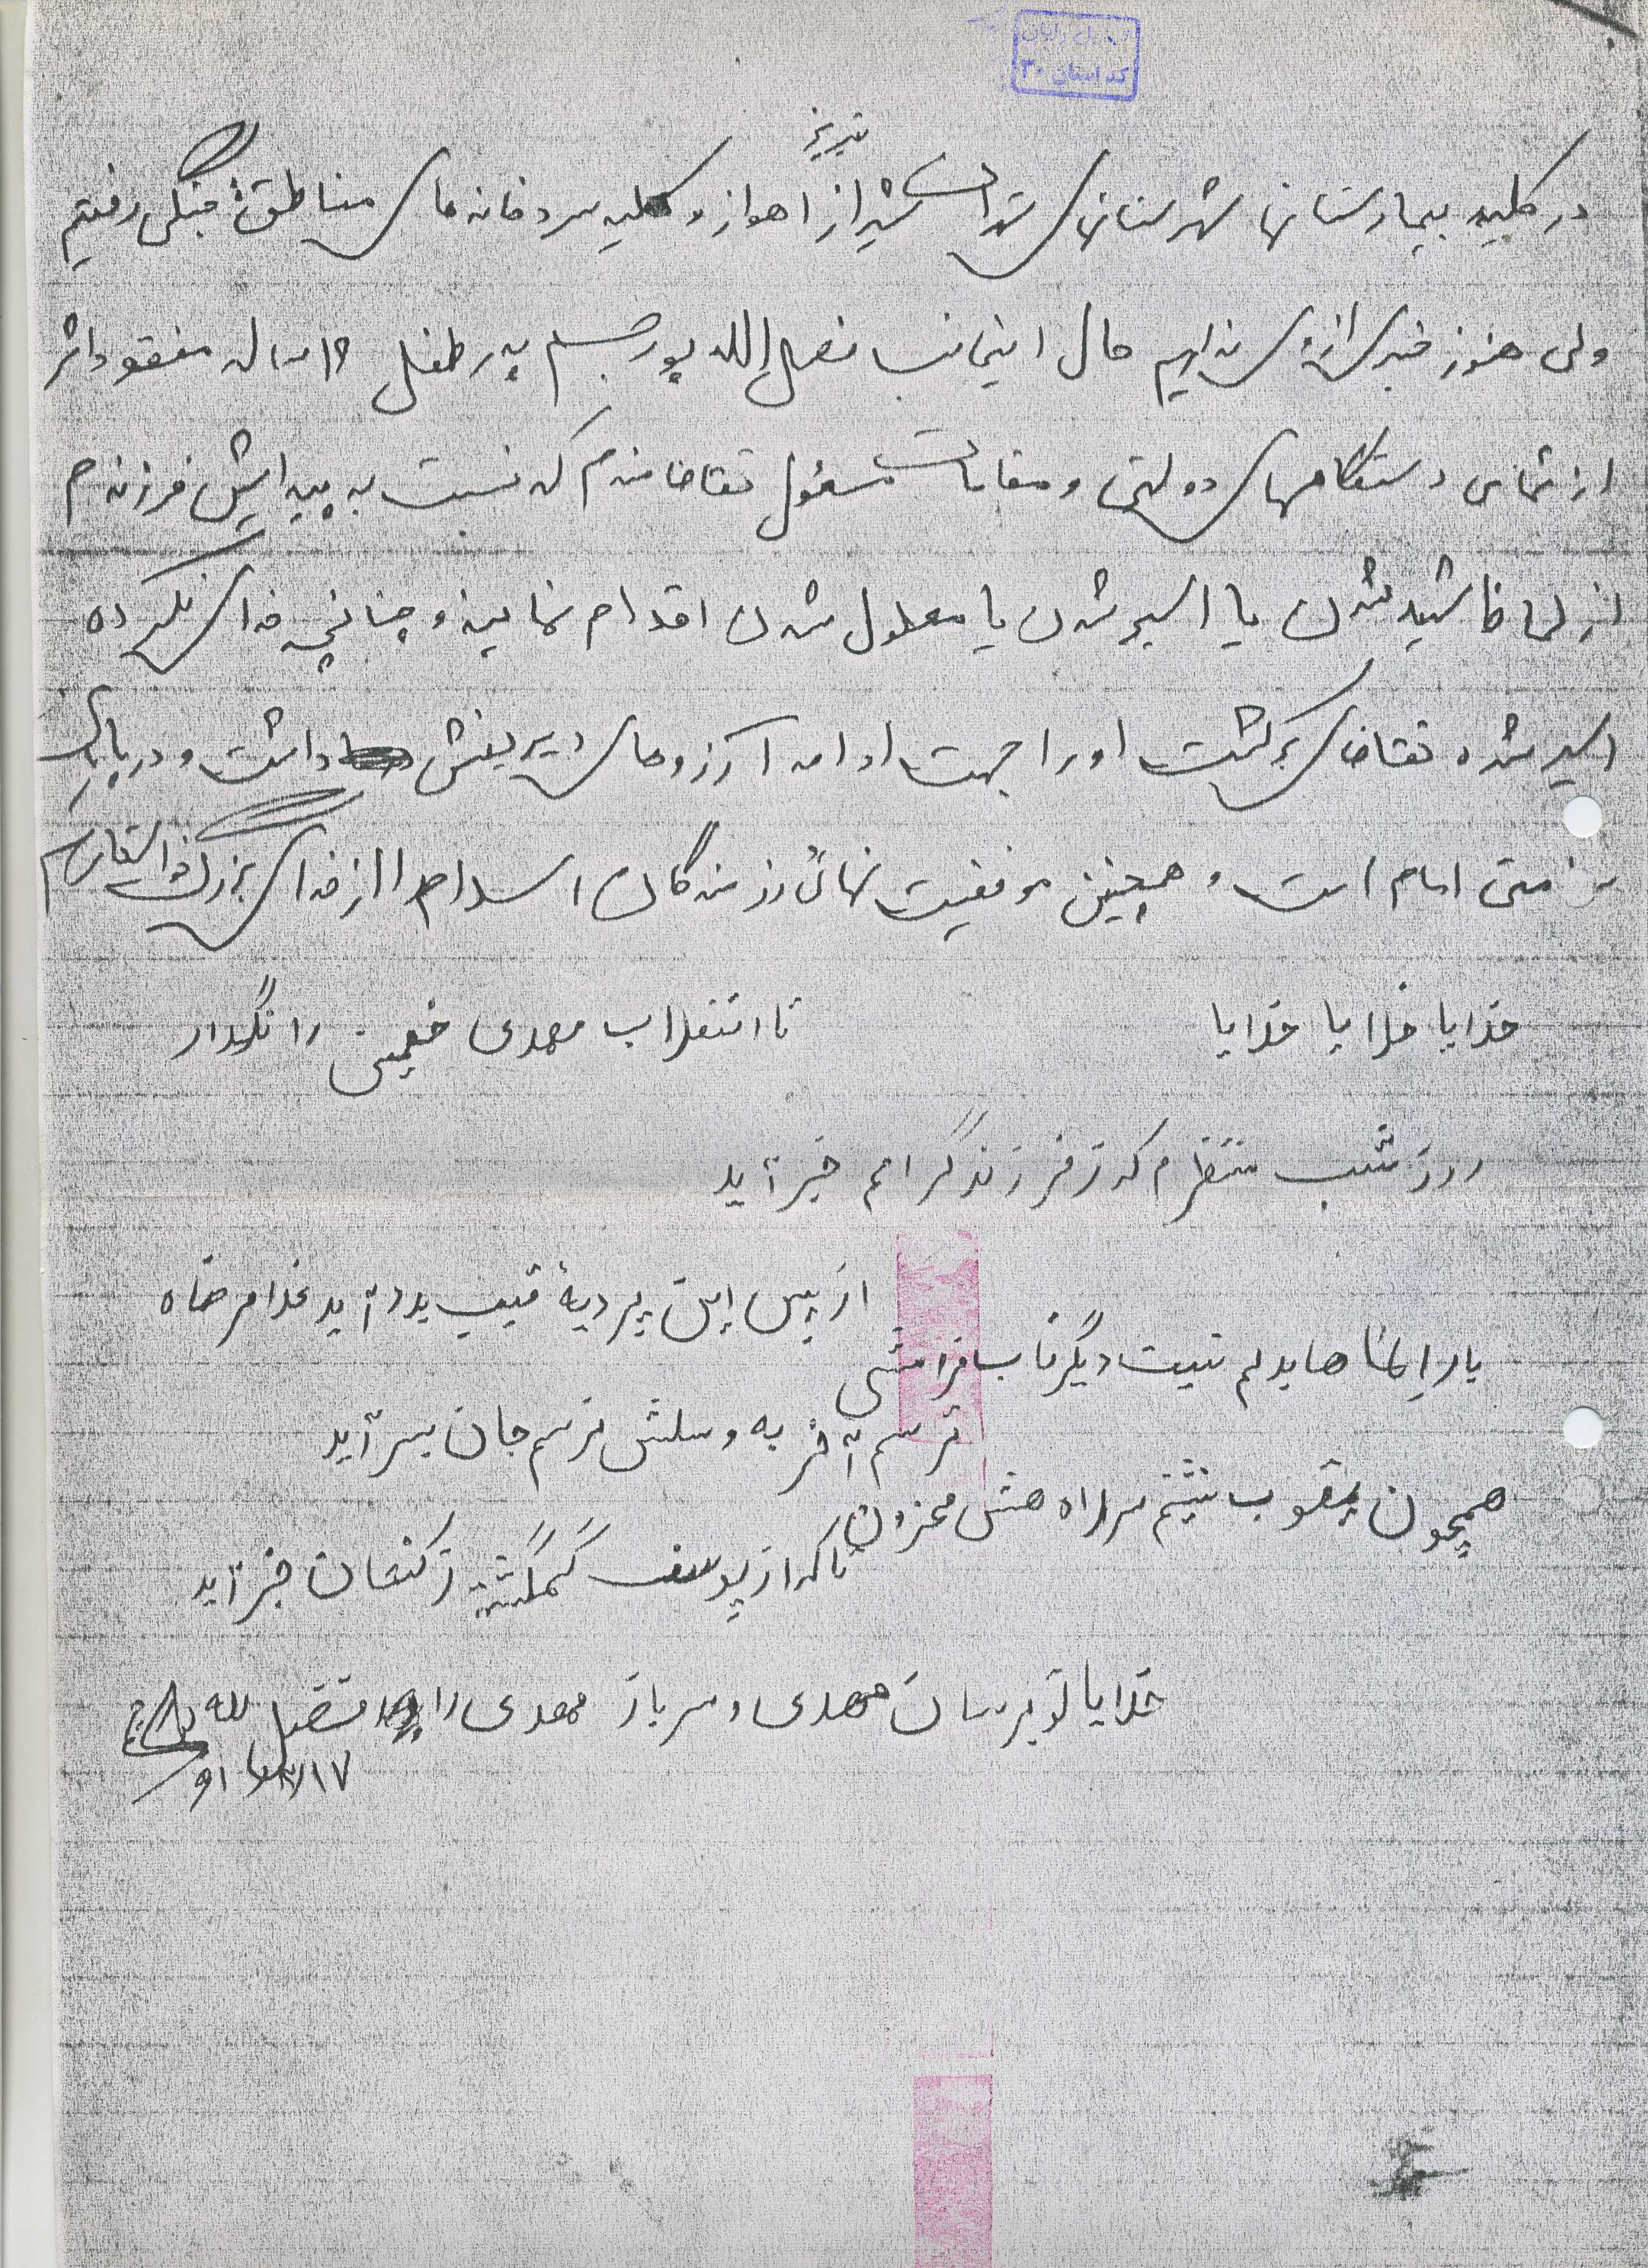 کد استان ۳۰
تبریز
در کلیه بیمارستانها شهرستانهای شیراز اهواز و کلیه سردخانه های مناطق جنگی رفتیم
ولی هنوز خبری از او نداریم حال اینجانب فضل الله پور رستم پدر طفل ساله مفقود الاثر
از تمامی دستگاههای دولتی و مقامات مسئول تقاضامندم که نسبت به پیدایش فرزندم
از لحاظ شهید شدن یا اسیر شدن یا معلول شدن اقدام نمایند و چنانچه خدای نکرده
اسیر شده تقاضای برگشت او را جهت ادامه آرزوهای داشت و در
امام است و همچنین موفقیت نهائی رزمندگان اسلام را از خدای بزرگ خواستارم
خدایا خدایا خدایا تا انقلاب مهدی خمینی را نگهدار
روز شب منتظرم که ز فرزند گرامم خبر آید
از پس این پرده غیب بدر آید
یار بدلم نیست دیگر تاب
ترسم آخر به وصلش نرسم جان بسر آید
همچون یعقوب نشینم سر راهش محزون
تا که از یوسف گمگشته ز کنعان خبر آید
خدایا تو برسان مهدی و سرباز مهدی را فضل الله